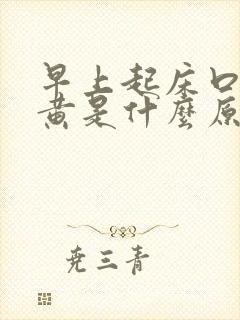 早上起床口
黄是什麼原
尭三青